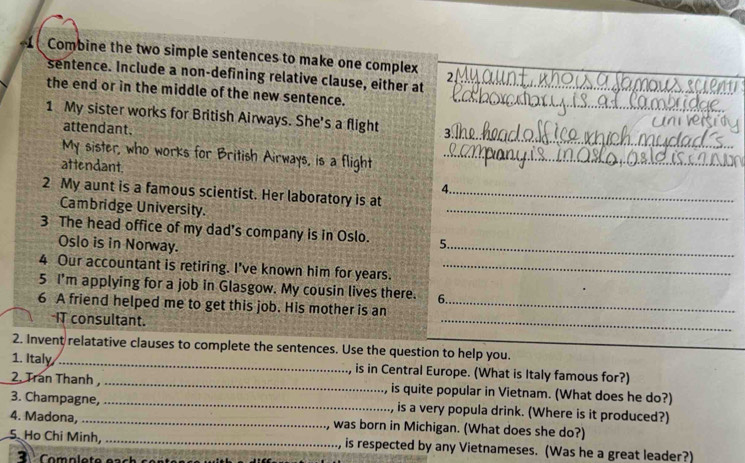 1 Combine the two simple sentences to make one complex
sentence. Include a non-defining relative clause, either at
the end or in the middle of the new sentence.
1 My sister works for British Airways. She's a flight
attendant.
My sister, who works for British Airways, is a flight
attendant.
2 My aunt is a famous scientist. Her laboratory is at
Cambridge University.
3 The head office of my dad's company is in Oslo.
Oslo is in Norway.
4 Our accountant is retiring. I've known him for years.
5 I'm applying for a job in Glasgow. My cousin lives there.
6 A friend helped me to get this job. His mother is an
IT consultant.
2 My aunt, who is a famous scienti
is at Cambridge
university
3 The head office which my dad's
company is in Oslo, Oslo is
4
5
6
2. Invent relatative clauses to complete the sentences. Use the question to help you.
1. Italy, , is in Central Europe. (What is Italy famous for?)
2. Tran Thanh , , is quite popular in Vietnam. (What does he do?)
3. Champagne, , is a very popula drink. (Where is it produced?)
4. Madona, , was born in Michigan. (What does she do?)
5. Ho Chi Minh, , is respected by any Vietnameses. (Was he a great leader?)
3 Complete each